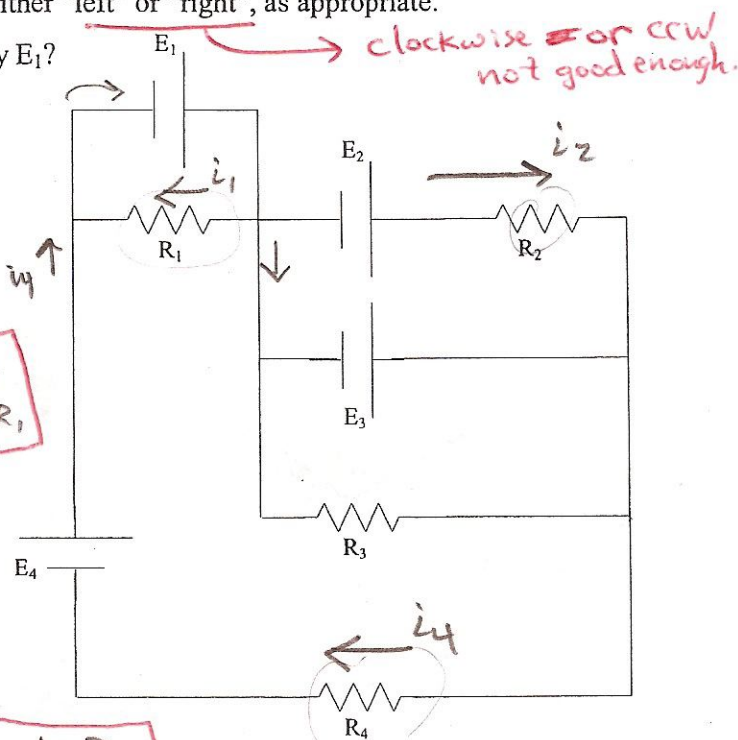 ither "left" or "right", as appropriate.
y E₁?
clockwise or ccw
not good enough.
E₁
E₂
i₂
i₁
R₁
R₂
i₄
R₁
E₃
R₃
E₄
i₄
R₄